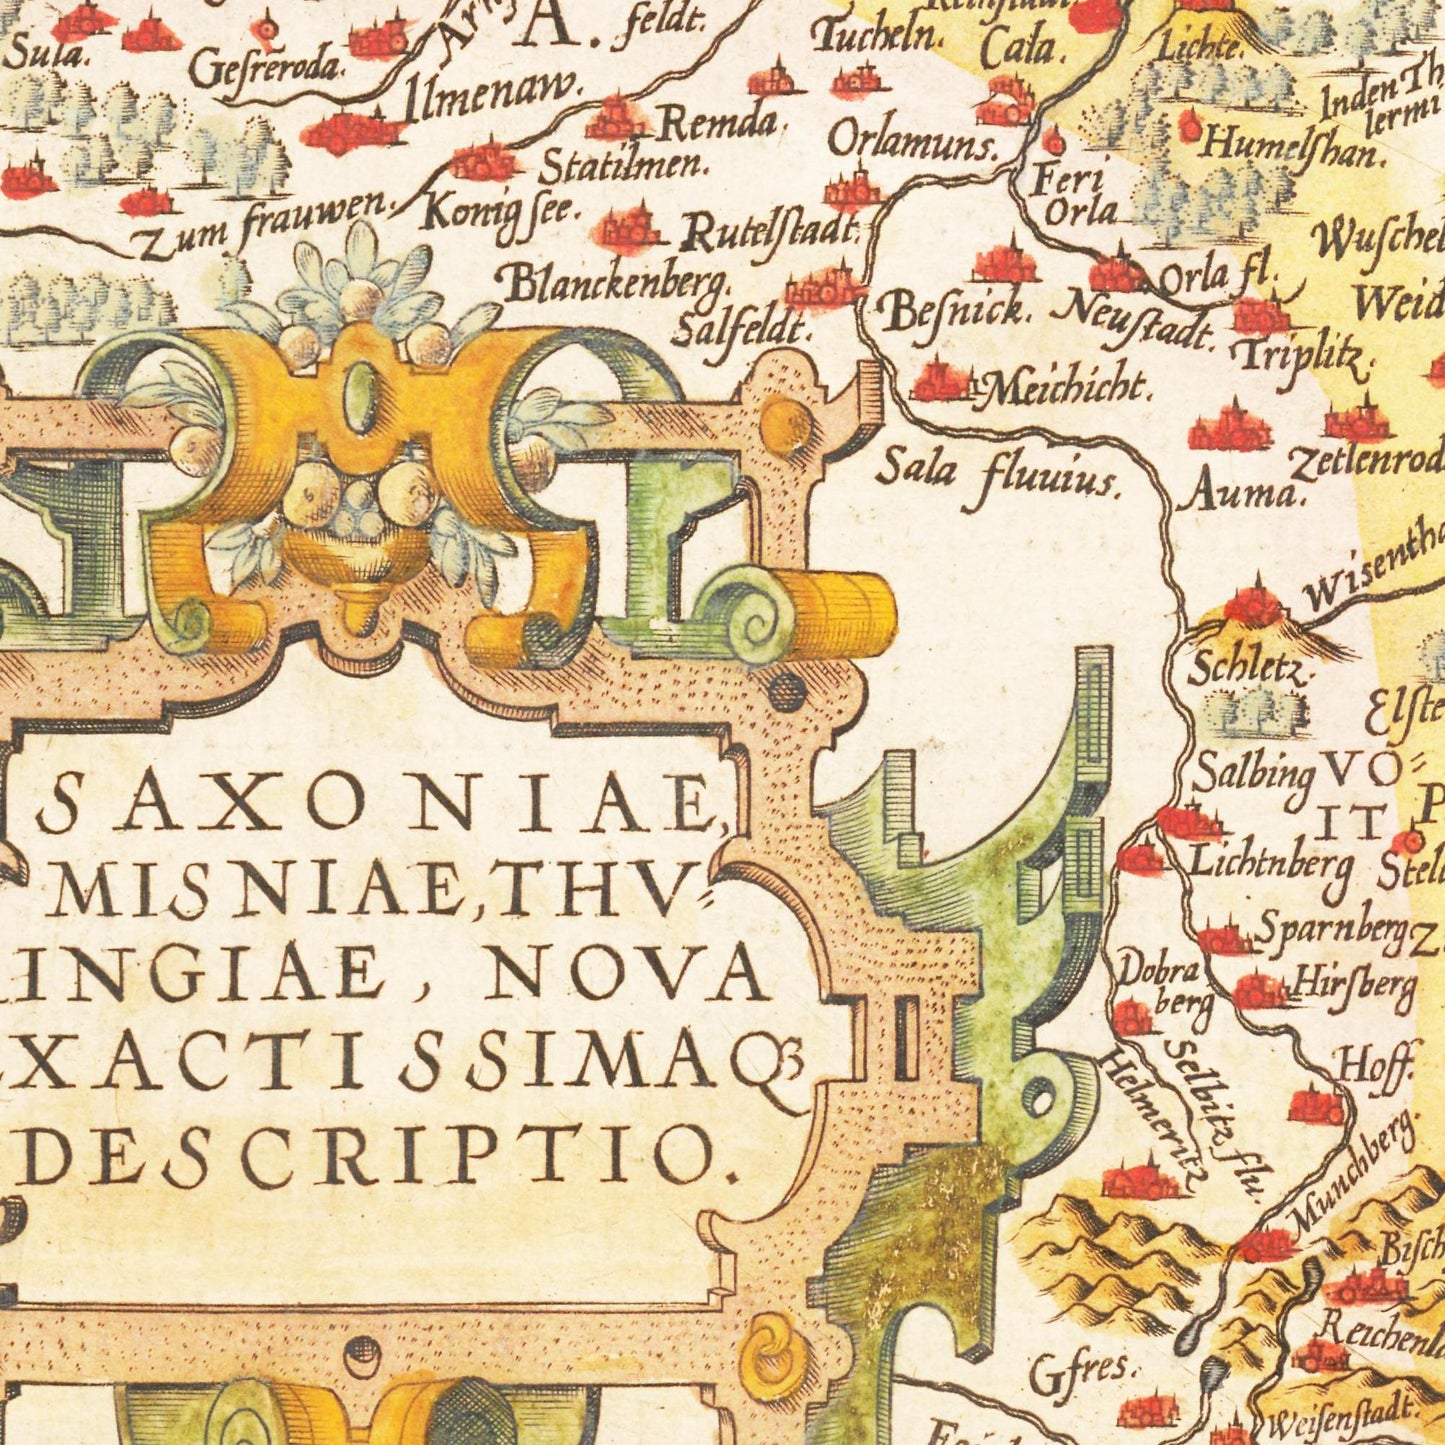 Sula.
Gesrēroda.
A.
feldt.
Tucheln.
Cala.
Lichte.
Ilmenaw.
Remda.
Orlamuns.
Humelshan.
Inden Th
lermi
Statilmen.
Feri
Orla
Zum frauwen.
Konigsee.
Rutelstadt.
Wuschel
Blanckenberg.
Orla fl.
Weid
Salfeldt.
Besnick.
Neustadt.
Triplitz.
Meichicht.
Sala fluuius.
Auma.
Zetlenrod
Wisentha
Schletz.
Elste
Salbing
VO⸗
IT
P
Lichtnberg
Stell
Sparnberg
Z
Dobra
berg
Hirsberg
Selbitz flu.
Helmeritz
Hoff.
Munchberg.
Bisch
Reichenla
Gfres.
Weisenstadt.
SAXONIAE,
MISNIAE, THV⸗
INGIAE, NOVA
XACTISSIMAQꝫ
DESCRIPTIO.